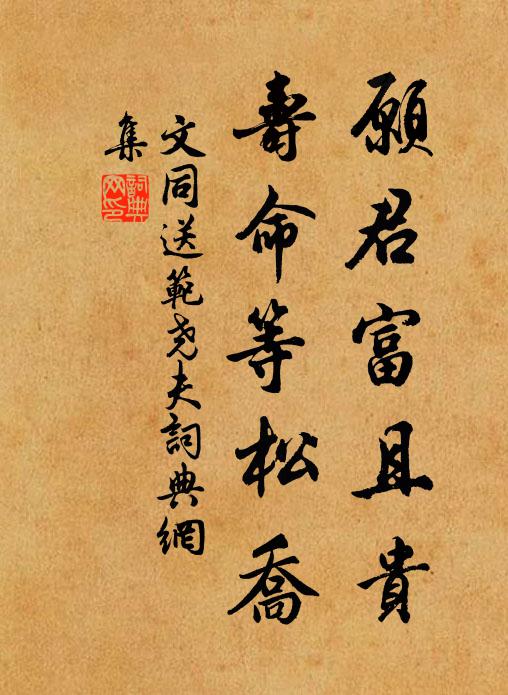 願君富且貴
壽命等松喬
文同送範尭夫詞典網
集
詞典
网印